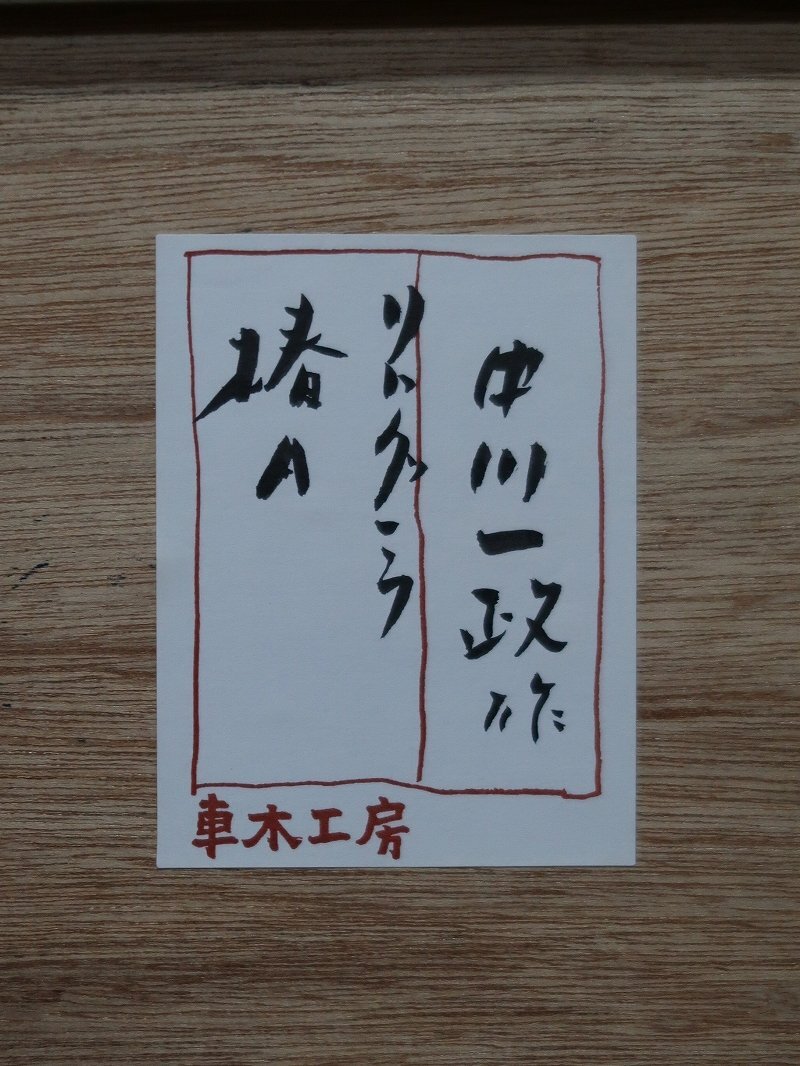 中川一政作
リトグラフ
椿A
車木工房